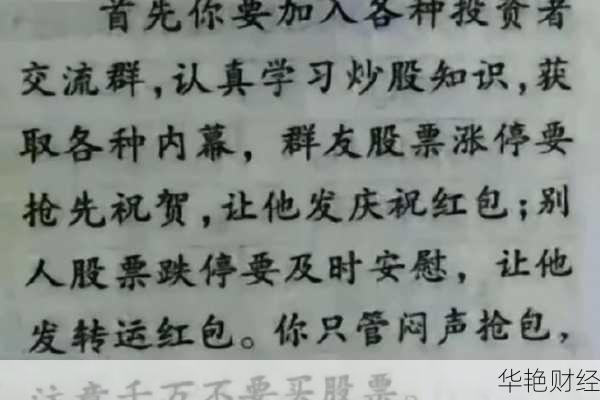 首先你要加入各种投资者
交流群,认真学习炒股知识,获
取各种内幕，群友股票涨停要
抢先祝贺,让他发庆祝红包;别
人股票跌停要及时安慰，让他
发转运红包。你只管闷声抢包,
注意千万不要买股票。
华艳财经